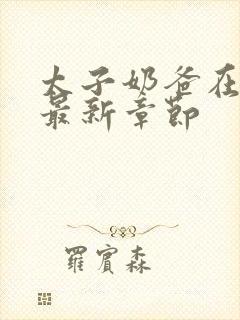 太子奶爸在
最新章節
羅賓森